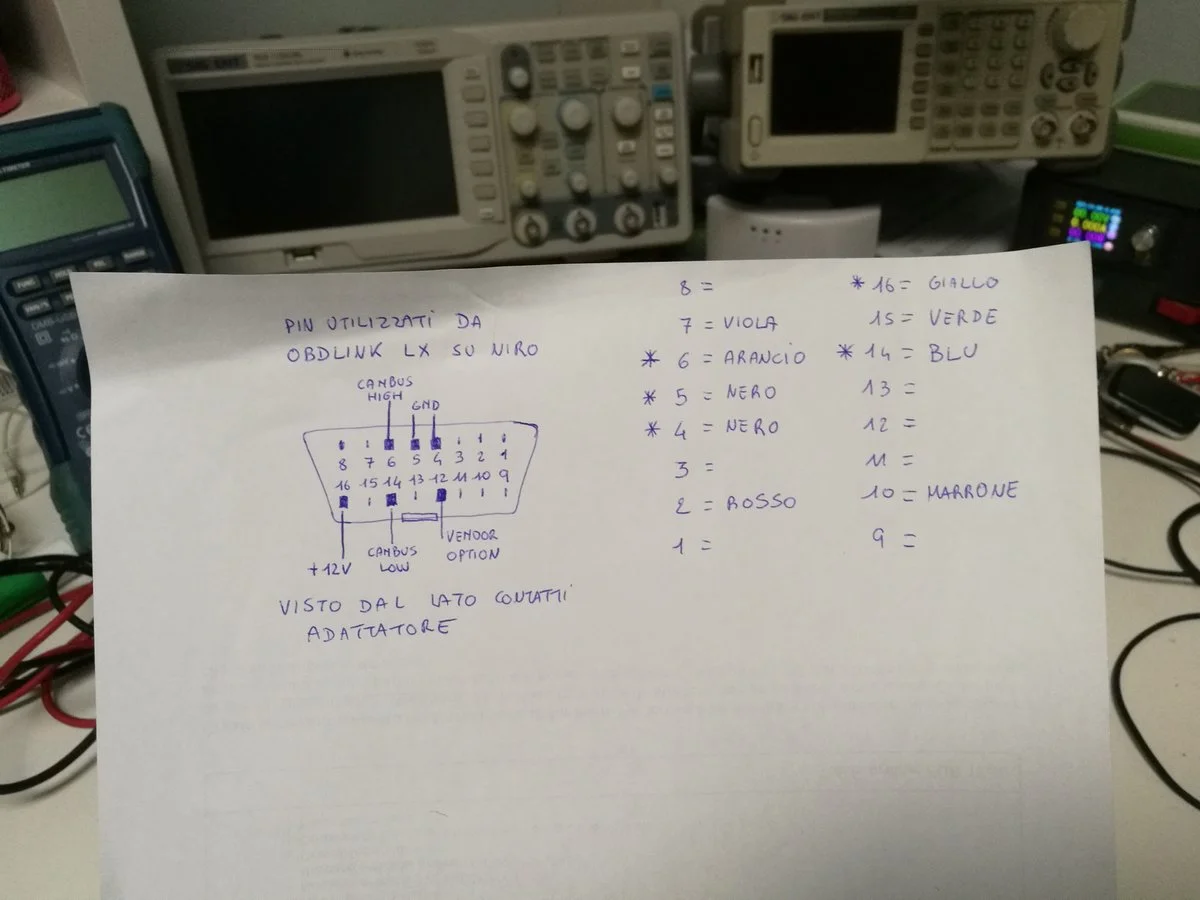 PIN UTILIZZATI DA
OBDLINK LX SU NIRO
CANBUS
HIGH
GND
8 7 6 5 4 3 2 1
16 15 14 13 12 11 10 9
+12V
CANBUS
LOW
VENDOR
OPTION
VISTO DAL LATO CONTATTI
ADATTATORE
8 =
7 = VIOLA
* 6 = ARANCIO
* 5 = NERO
* 4 = NERO
3 =
2 = ROSSO
1 =
* 16 = GIALLO
15 = VERDE
* 14 = BLU
13 =
12 =
11 =
10 = MARRONE
9 =